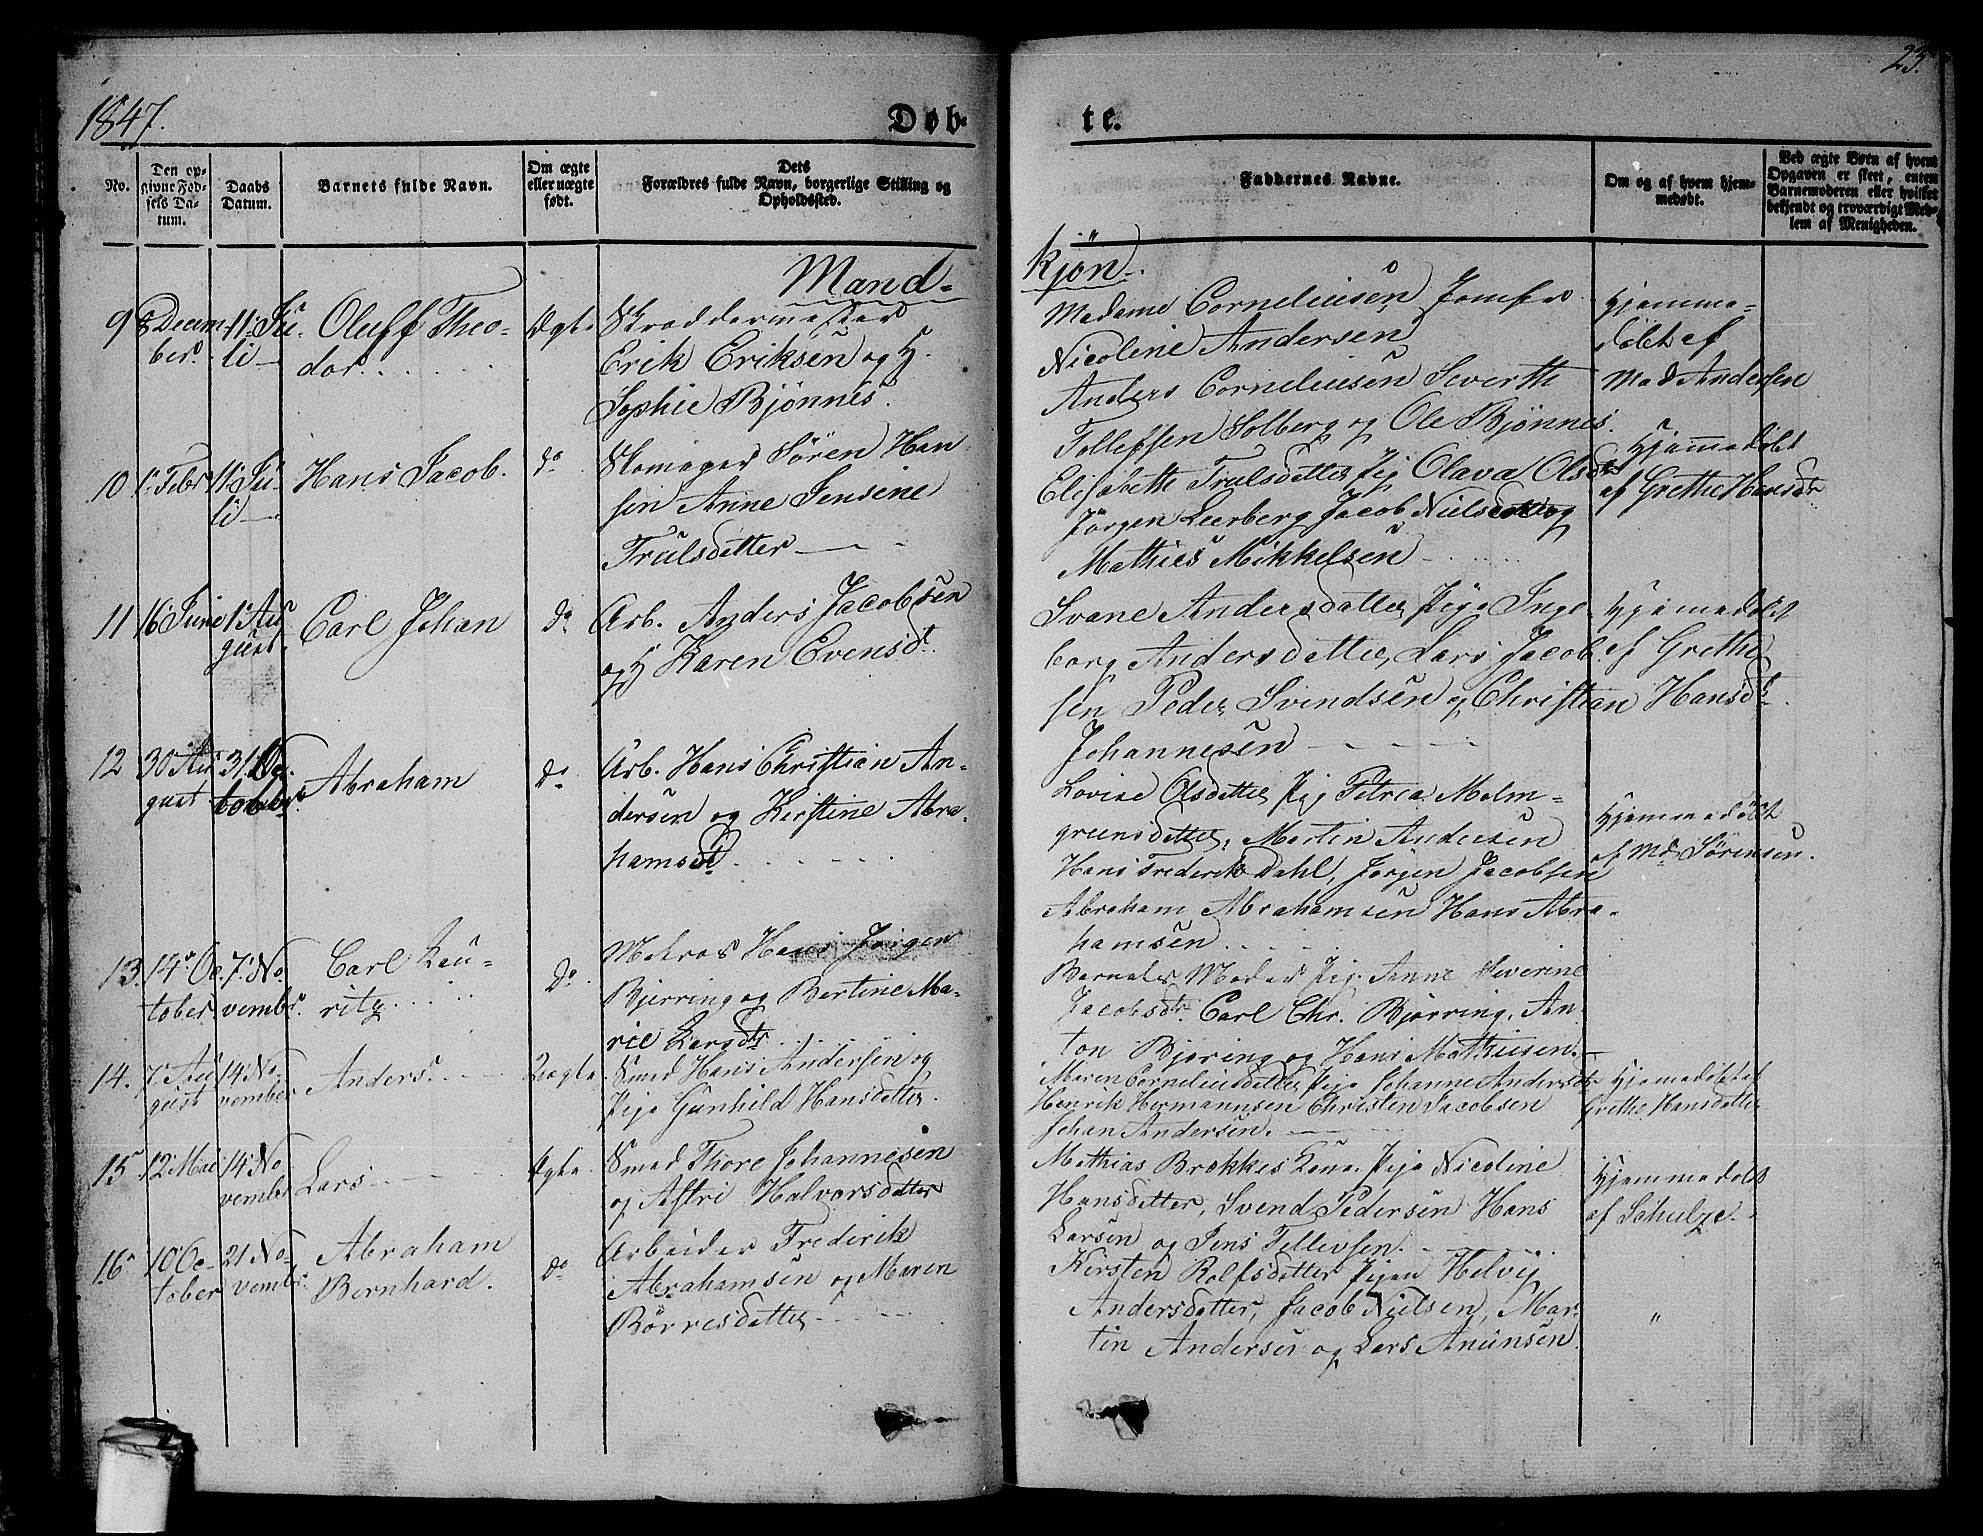 23.
1847.
Døb-
te.
No.
Den op-
givne Fød-
sels Da-
tum.
Daabs
Datum.
Barnets fulde Navn.
Om ægte
eller uægte
født.
Dets
Forældres fulde Navn, borgerlige Stilling og
Opholdssted.
Faddernes Navne.
Om og af hvem hjem-
medøbt.
Ved ægte Børn af hvem
Opgaven er skeet, enten
Barnemoderen eller hvilket
bekjendt og troværdigt Med-
lem af Menigheden.
Mand-
kjøn.
9
8 Decem-
ber.
11 Ju-
li
Oluff Theo-
dor
Ægte
Skræddermester
Erik Eriksen og H.
Sophie Bjönnes.
Madame Corneliusen, Jomfru
Nicoline Andersen
Anders Corneliusen Severth
Tollefsen Solberg og Ole Bjönnes.
Hjemme-
döbt af
Mad Andersen
10
1 Febr
11 Ju-
li
Hans Jacob.
do
Skomager Sören Han-
sen Anne Jensine
Trulsdatter
Elisabeth Trulsdatter Pige Olava Olsdtr
Jörgen Leerberg Jacob Nielsen og
Mathies Mikkelsen
Hjemmedöbt
af Grethe Hansdtr
11
16 Juni
1 Au
gust.
Carl Johan
do
Arb. Anders Jacobsen
og H Karen Evensdt.
Svane Andersdatter, Pige Inge
borg Andersdatter, Lars Jacob-
sen Peder Svendsen og Christian
Johannesen
Hjemmedöbt
af Grethe
Hansdtr.
12
30 Au
gust
31 Oc-
tober.
Abraham
do
Arb. Hans Christian An-
dersen og Kirstine Abra-
hamsdt.
Lovise Olsdatter Pige Petrea Malm-
greensdatter, Martin Andersen
Hans Frederik Dahl, Jörgen Jacobsen
Abraham Abrahamsen Hans Abra-
hamsen
Hjemmedöbt
af Md Sörensen.
13.
14 Oc-
tober.
7 No
vembr.
Carl Lau-
ritz
do
Matros Hans Jörgen
Bjerring og Bertine Ma-
rie Larsdtr
Barnets Moder Pige Anne Severine
Jacobsdtr Carl Chr. Bjørring, An-
ton Bjøring og Hans Mathiesen.
14.
7 Au
gust
14 No
vember
Anders.
Uægte.
Smed Hans Andersen og
Pige Gunhild Hansdatter.
Maren Corneliusdatter Pige Johanne Andersdtr
Henrik Hermannsen Christen Jacobsen
Johan Andersen.
Hjemmedöbt af
Grethe Hansdatter
15
12 Mai
14 No
vember
Lars
Ægte.
Smed Thore Johannesen
og Astri Halvorsdatter
Mathias Brækkes Kone. Pige Nicoline
Hansdatter, Svend Pedersen Hans
Larsen og Jens Tellevsen.
Hjemmedöbt
af Schulze.
16
10 Oc-
tober
21 No
vembr.
Abraham
Bernhard.
do
Arbeider Frederik
Abrahamsen og Maren
Börresdatter
Kirsten Rolfsdatter Pigen Helvig
Andersdatter, Jacob Nielsen, Mar-
tin Andersen og Lars Anunsen.
"